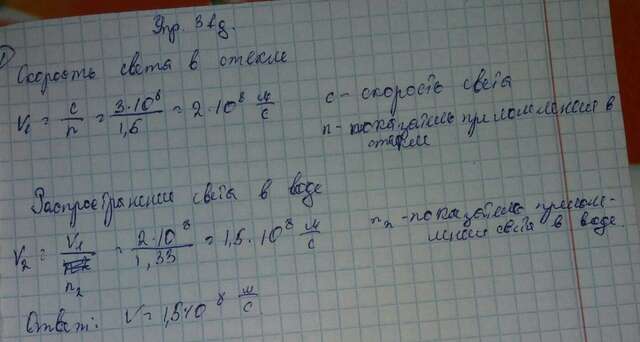 Упр. 31д.
1)
Скорость света в стекле
V₁ = c/n = 3·10⁸/1,5 = 2·10⁸ м/с
c – скорость света
n – показатель преломления в
стекле
Распространение света в воде
V₂ = V₁/n₂ = 2·10⁸/1,33 = 1,5·10⁸ м/с
n₂ – показатель прелом-
ления света в воде.
Ответ: V = 1,5·10⁸ м/с